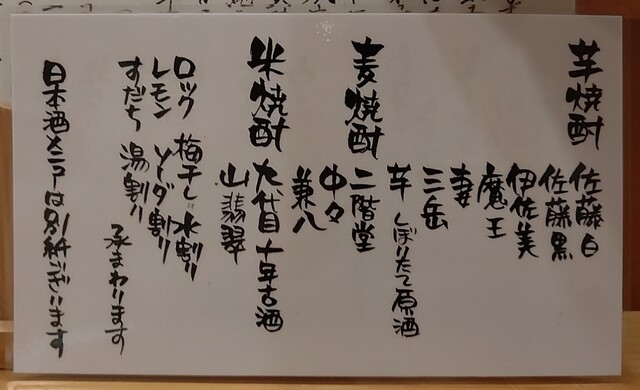 芋焼酎
佐藤白
佐藤黒
伊佐美
魔王
妻
三岳
芋 しぼりたて原酒
麦焼酎
二階堂
中々
兼八
米焼酎
九代目 十年古酒
山翡翠
ロック 梅干し 水割り
レモン ソーダ割り
すだち 湯割り
承まわります
日本酒メニューは別紙ございます